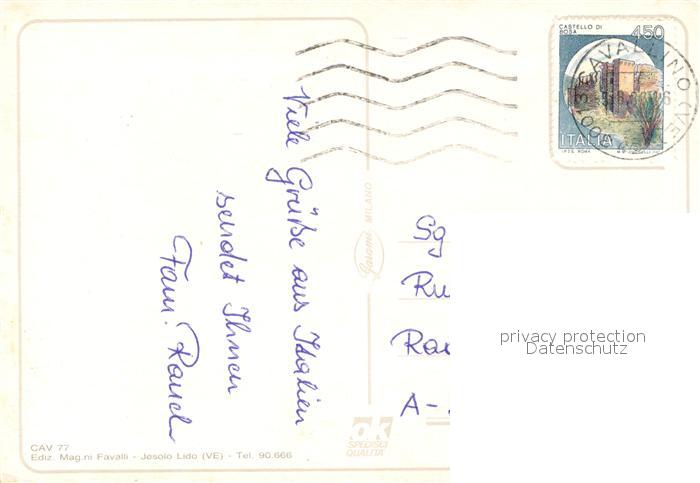 CASTELLO DI
BOSA
450
CAVALLINO (VE)
ITALIA
I.P.Z.S. ROMA
Viele Grüße aus Italien
sendet Ihnen
Fam. Rausch
Garami MILANO
Sg
Ru
Rau
A-
privacy protection
Datenschutz
ok
SPEDISCI
QUALITA'
CAV 77
Ediz. Mag.ni Favalli - Jesolo Lido (VE) - Tel. 90.666